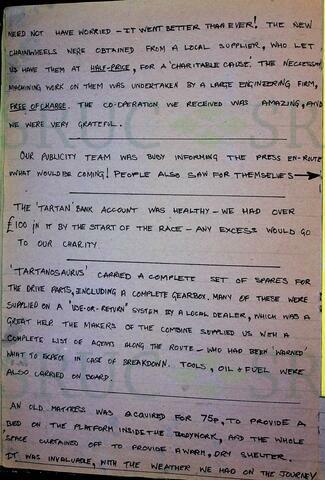 NEED NOT HAVE WORRIED - IT WENT BETTER THAN EVER! THE NEW
CHAINWHEELS WERE OBTAINED FROM A LOCAL SUPPLIER, WHO LET
US HAVE THEM AT HALF-PRICE, FOR A 'CHARITABLE CAUSE. THE NECESSARY
MACHINING WORK ON THEM WAS UNDERTAKEN BY A LARGE ENGINEERING FIRM,
FREE OF CHARGE. THE CO-OPERATION WE RECEIVED WAS AMAZING, AND
WE WERE VERY GRATEFUL.
OUR PUBLICITY TEAM WAS BUSY INFORMING THE PRESS EN-ROUTE
WHAT WOULD BE COMING! PEOPLE ALSO SAW FOR THEMSELVES →
THE 'TARTAN' BANK ACCOUNT WAS HEALTHY - WE HAD OVER
£100 IN IT BY THE START OF THE RACE - ANY EXCESS WOULD GO
TO OUR CHARITY.
'TARTANOSAURUS' CARRIED A COMPLETE SET OF SPARES FOR
THE DRIVE PARTS, INCLUDING A COMPLETE GEARBOX. MANY OF THESE WERE
SUPPLIED ON A 'USE-OR-RETURN' SYSTEM BY A LOCAL DEALER, WHICH WAS A
GREAT HELP. THE MAKERS OF THE COMBINE SUPPLIED US WITH A
COMPLETE LIST OF AGENTS ALONG THE ROUTE - WHO HAD BEEN 'WARNED'
WHAT TO EXPECT IN CASE OF BREAKDOWN. TOOLS, OIL & FUEL WERE
ALSO CARRIED ON BOARD.
AN OLD MATTRESS WAS ACQUIRED FOR 75p, TO PROVIDE A
BED ON THE PLATFORM INSIDE THE BODYWORK, AND THE WHOLE
SPACE CURTAINED OFF TO PROVIDE A WARM, DRY SHELTER.
IT WAS INVALUABLE, WITH THE WEATHER WE HAD ON THE JOURNEY